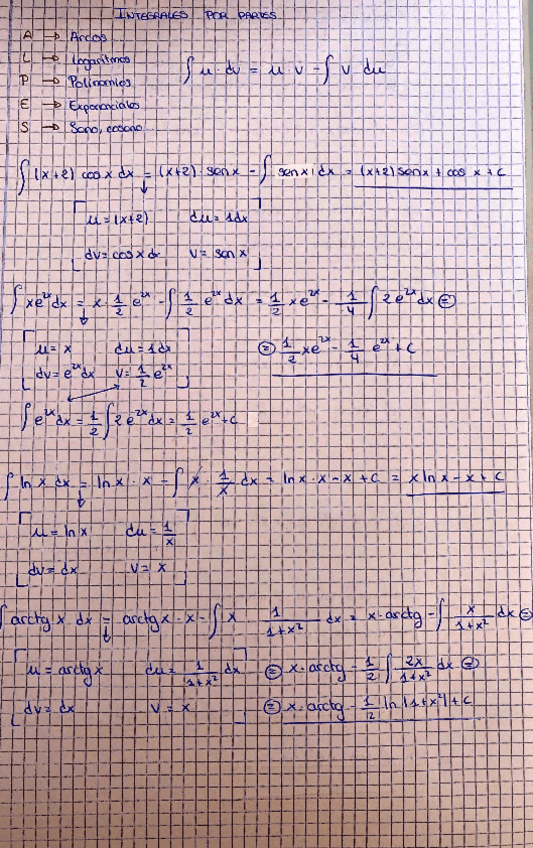 INTEGRALES POR PARTES
A → Arcos
L → Logaritmos
P → Polinomios
E → Exponenciales
S → Seno, coseno...
∫ u · dv = u · v - ∫ v · du
∫ (x+2) cos x dx = (x+2) · sen x - ∫ sen x · 1 dx = (x+2) sen x + cos x + C
u = (x+2) du = 1dx
dv = cos x dx v = sen x
∫ x e^{2x} dx = x · 1/2 e^{2x} - ∫ 1/2 e^{2x} dx = 1/2 x e^{2x} - 1/4 ∫ 2 e^{2x} dx =
u = x du = 1dx
= 1/2 x e^{2x} - 1/4 e^{2x} + C
dv = e^{2x} dx v = 1/2 e^{2x}
∫ e^{2x} dx = 1/2 ∫ 2 e^{2x} dx = 1/2 e^{2x} + C
∫ ln x dx = ln x · x - ∫ x · 1/x dx = ln x · x - x + C = x ln x - x + C
u = ln x du = 1/x
dv = dx v = x
∫ arctg x dx = arctg x · x - ∫ x · 1/(1+x²) dx = x · arctg - ∫ x/(1+x²) dx =
u = arctg x du = 1/(1+x²) dx = x · arctg - 1/2 ∫ 2x/(1+x²) dx =
dv = dx v = x = x · arctg - 1/2 ln |1+x²| + C